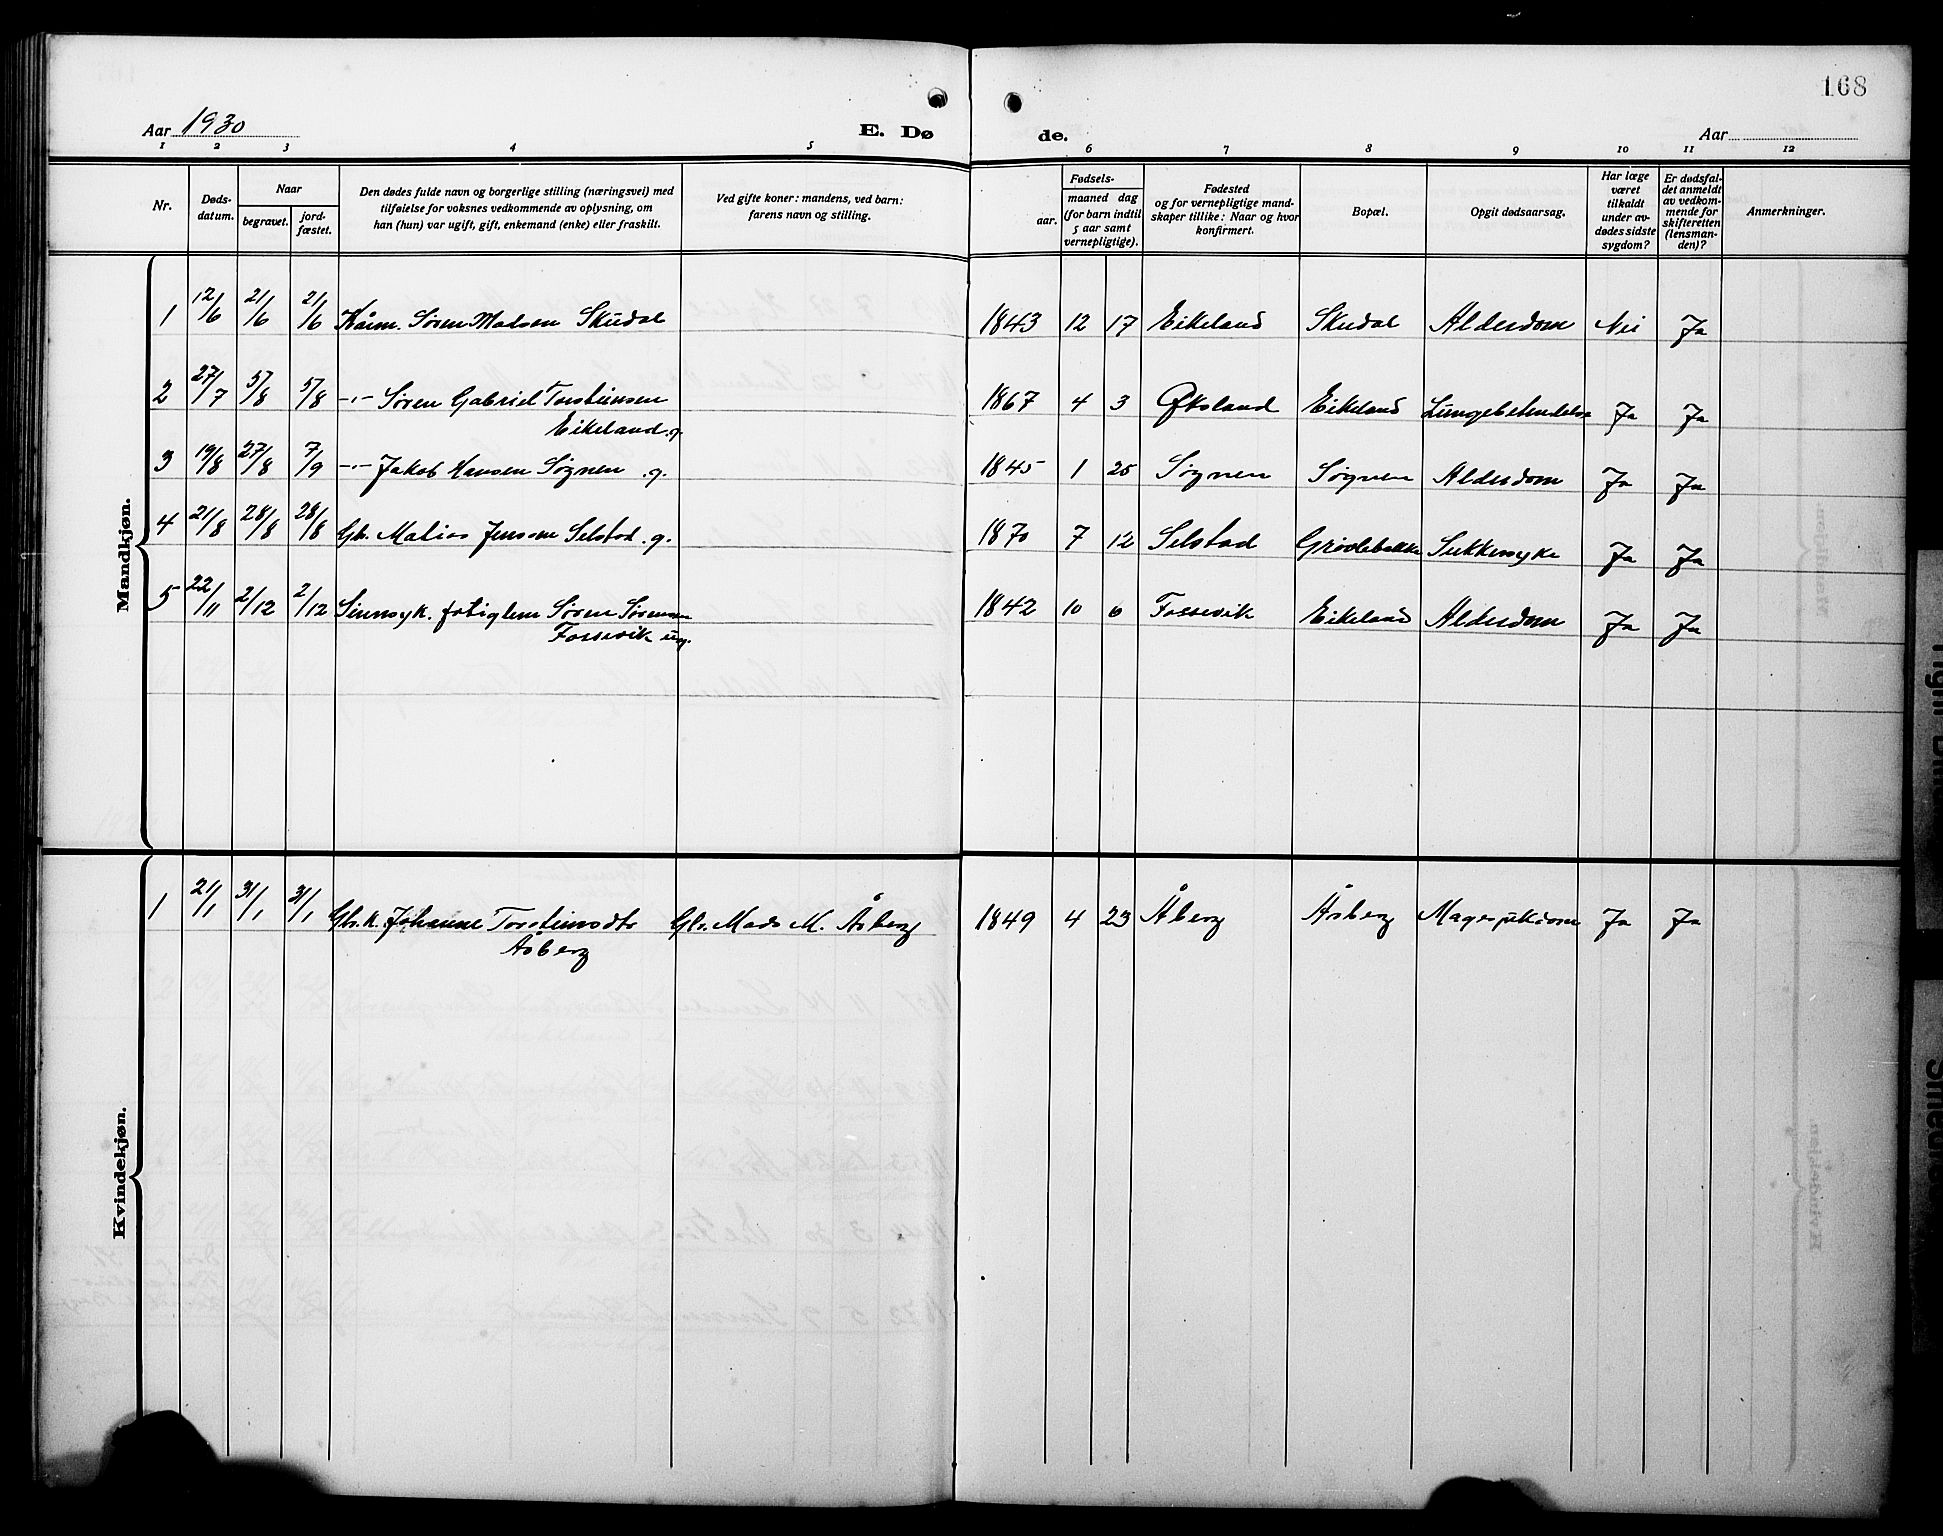 168
Aar 1930
E. Dø
de.
Aar
1 2 3 4 5 6 7 8 9 10 11 12
Nr.
Døds-
datum.
Naar
begravet.
jord-
fæstet.
Den dødes fulde navn og borgerlige stilling (næringsvei) med
tilføielse for voksnes vedkommende av oplysning, om
han (hun) var ugift, gift, enkemand (enke) eller fraskilt.
Ved gifte koner: mandens, ved barn:
farens navn og stilling.
Fødsels-
aar.
maaned dag
(for barn indtil
5 aar samt
vernepligtige).
Fødested
og for vernepligtige mand-
skaper tillike: Naar og hvor
konfirmert.
Bopæl.
Opgit dødsaarsag.
Har læge
været
tilkaldt
under av-
dødes sidste
sygdom?
Er dødsfal-
det anmeldt
av vedkom-
mende for
skifteretten
(lensman-
den)?
Anmerkninger.
Mandkjøn.
1 12/6 21/6 21/6 Kårm. Søren Madsen Skudal 1843 12 17 Eikeland Skudal Alderdom Nei Ja
2 27/7 5/8 5/8 -"- Søren Gabriel Torsteinsen 1867 4 3 Øksland Eikeland Lungebetendelse Ja Ja
Eikeland. g.
3 19/8 27/8 7/9 -"- Jakob Hansen Søgnen . g. 1845 1 25 Søgnen Søgnen Alderdom Ja Ja
4 21/8 28/8 28/8 Gb. Matias Jenssen Selstad . g. 1870 7 12 Selstad Sukkersyke Ja Ja
5 22/11 2/12 2/12 Sinnsyk. fatiglem Søren Sørensen 1842 10 6 Fossevik Eikeland Alderdom Ja Ja
Fossevik ug.
Kvindekjøn.
1 21/1 31/1 31/1 Gbr.k. Johanne Torsteinsdtr Gbr. Mads M. Åsberg 1849 4 23 Åberg Åsberg Ja Ja
Åsberg